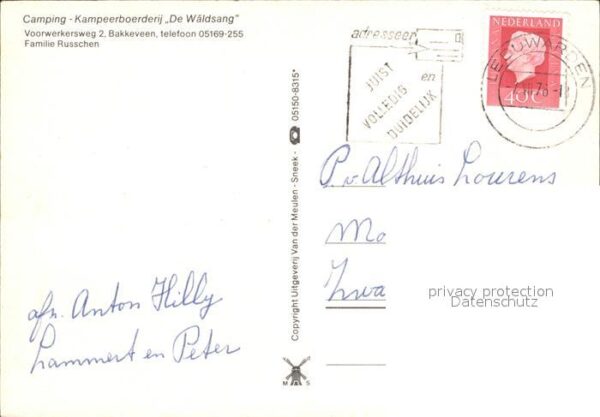 Camping - Kampeerboerderij „De Wâldsang"
Voorwerkersweg 2, Bakkeveen, telefoon 05169-255
Familie Russchen
afz. Anton Hilly
Lammert en Peter
Copyright Uitgeverij Van der Meulen - Sneek - 05150-8315*
M S
adresseer
JUIST
VOLLEDIG en
DUIDELIJK
NEDERLAND
40c
LEEUWARDEN
P. v Althuis Lourens
Mo
Zwa
privacy protection
Datenschutz